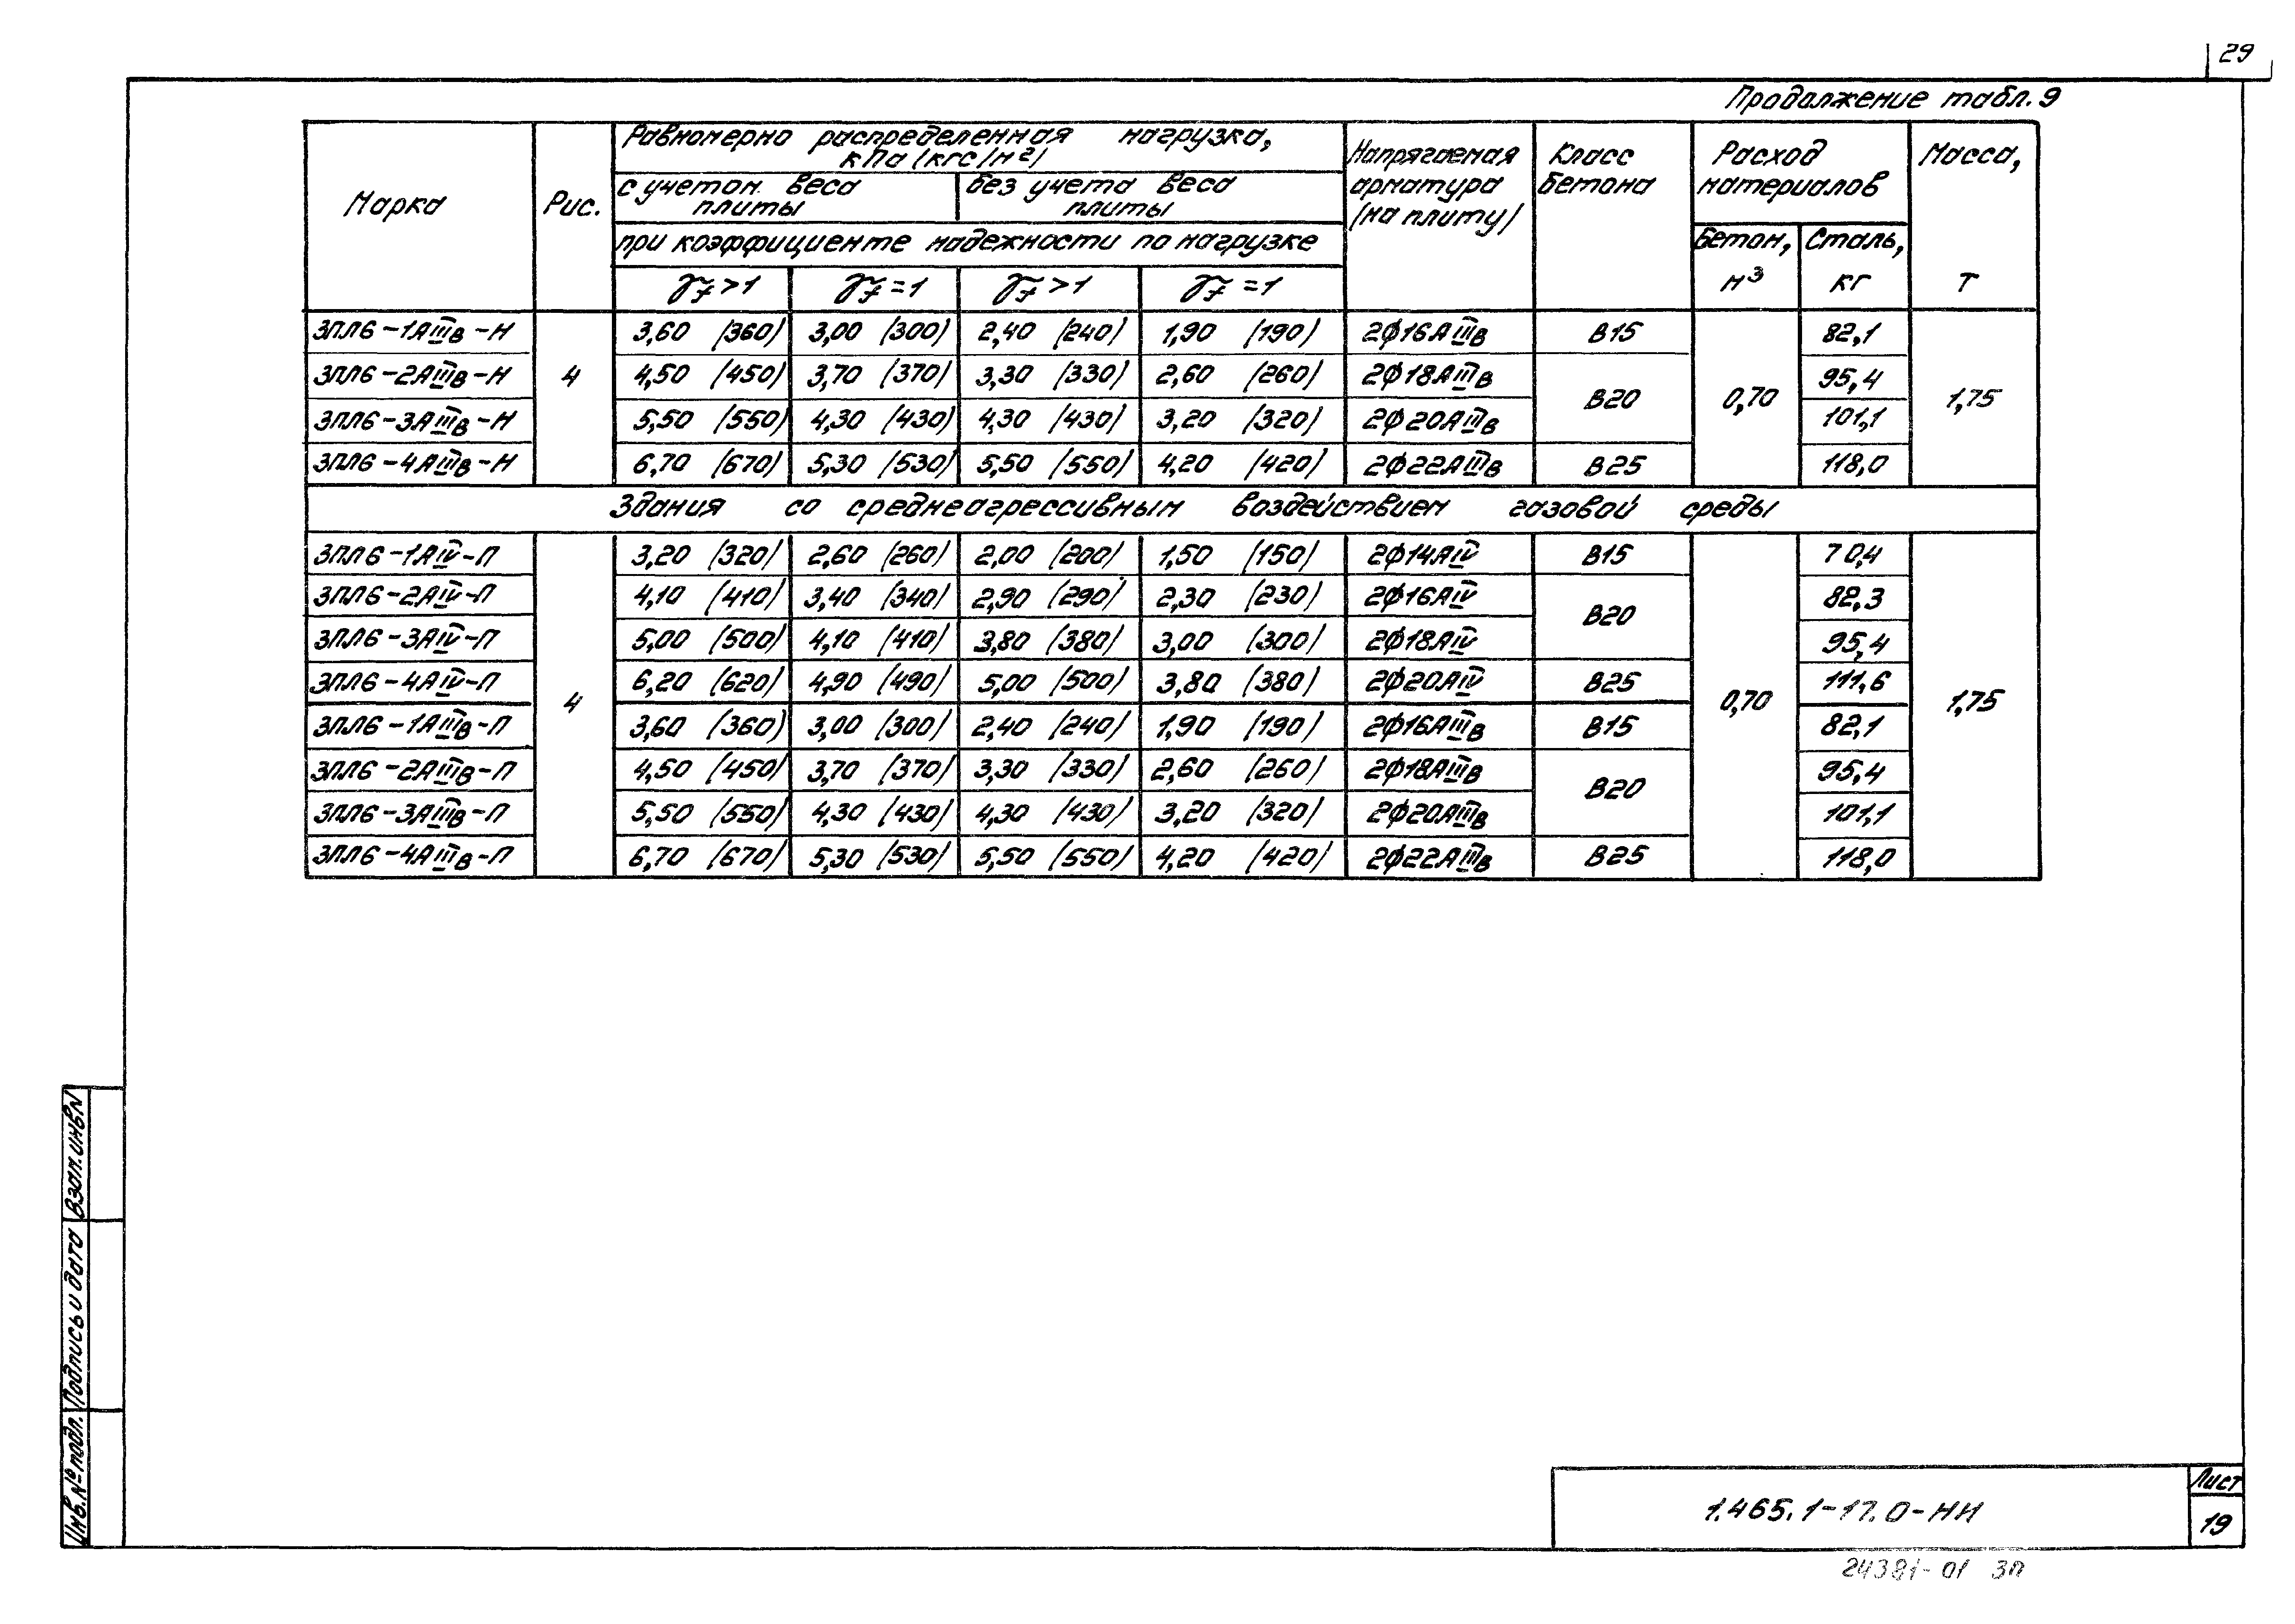 29
Продолжение табл. 9
Марка
Рис.
Равномерно распределенная нагрузка,
кПа (кгс/м²)
с учетом веса
плиты
без учета веса
плиты
при коэффициенте надежности по нагрузке
γf > 1
γf = 1
γf > 1
γf = 1
Напрягаемая
арматура
(на плиту)
Класс
бетона
Расход
материалов
Бетон,
м³
Сталь,
кг
Масса,
т
3ПЛ6-1АIIIв-Н 4 3,60 (360) 3,00 (300) 2,40 (240) 1,90 (190) 2ф16АIIIв В15 0,70 82,1 1,75
3ПЛ6-2АIIIв-Н 4,50 (450) 3,70 (370) 3,30 (330) 2,60 (260) 2ф18АIIIв В20 95,4
3ПЛ6-3АIIIв-Н 5,50 (550) 4,30 (430) 4,30 (430) 3,20 (320) 2ф20АIIIв 101,1
3ПЛ6-4АIIIв-Н 6,70 (670) 5,30 (530) 5,50 (550) 4,20 (420) 2ф22АIIIв В25 118,0
Здания со среднеагрессивным воздействием газовой среды
3ПЛ6-1АIV-П 4 3,20 (320) 2,60 (260) 2,00 (200) 1,50 (150) 2ф14АIV В15 0,70 70,4 1,75
3ПЛ6-2АIV-П 4,10 (410) 3,40 (340) 2,90 (290) 2,30 (230) 2ф16АIV В20 82,3
3ПЛ6-3АIV-П 5,00 (500) 4,10 (410) 3,80 (380) 3,00 (300) 2ф18АIV 95,4
3ПЛ6-4АIV-П 6,20 (620) 4,90 (490) 5,00 (500) 3,80 (380) 2ф20АIV В25 111,6
3ПЛ6-1АIIIв-П 3,60 (360) 3,00 (300) 2,40 (240) 1,90 (190) 2ф16АIIIв В15 82,1
3ПЛ6-2АIIIв-П 4,50 (450) 3,70 (370) 3,30 (330) 2,60 (260) 2ф18АIIIв В20 95,4
3ПЛ6-3АIIIв-П 5,50 (550) 4,30 (430) 4,30 (430) 3,20 (320) 2ф20АIIIв 101,1
3ПЛ6-4АIIIв-П 6,70 (670) 5,30 (530) 5,50 (550) 4,20 (420) 2ф22АIIIв В25 118,0
Взам. инв N
Подпись и дата
Инв. № подл.
1.465.1-17.0-НИ
Лист
19
24381-01 30